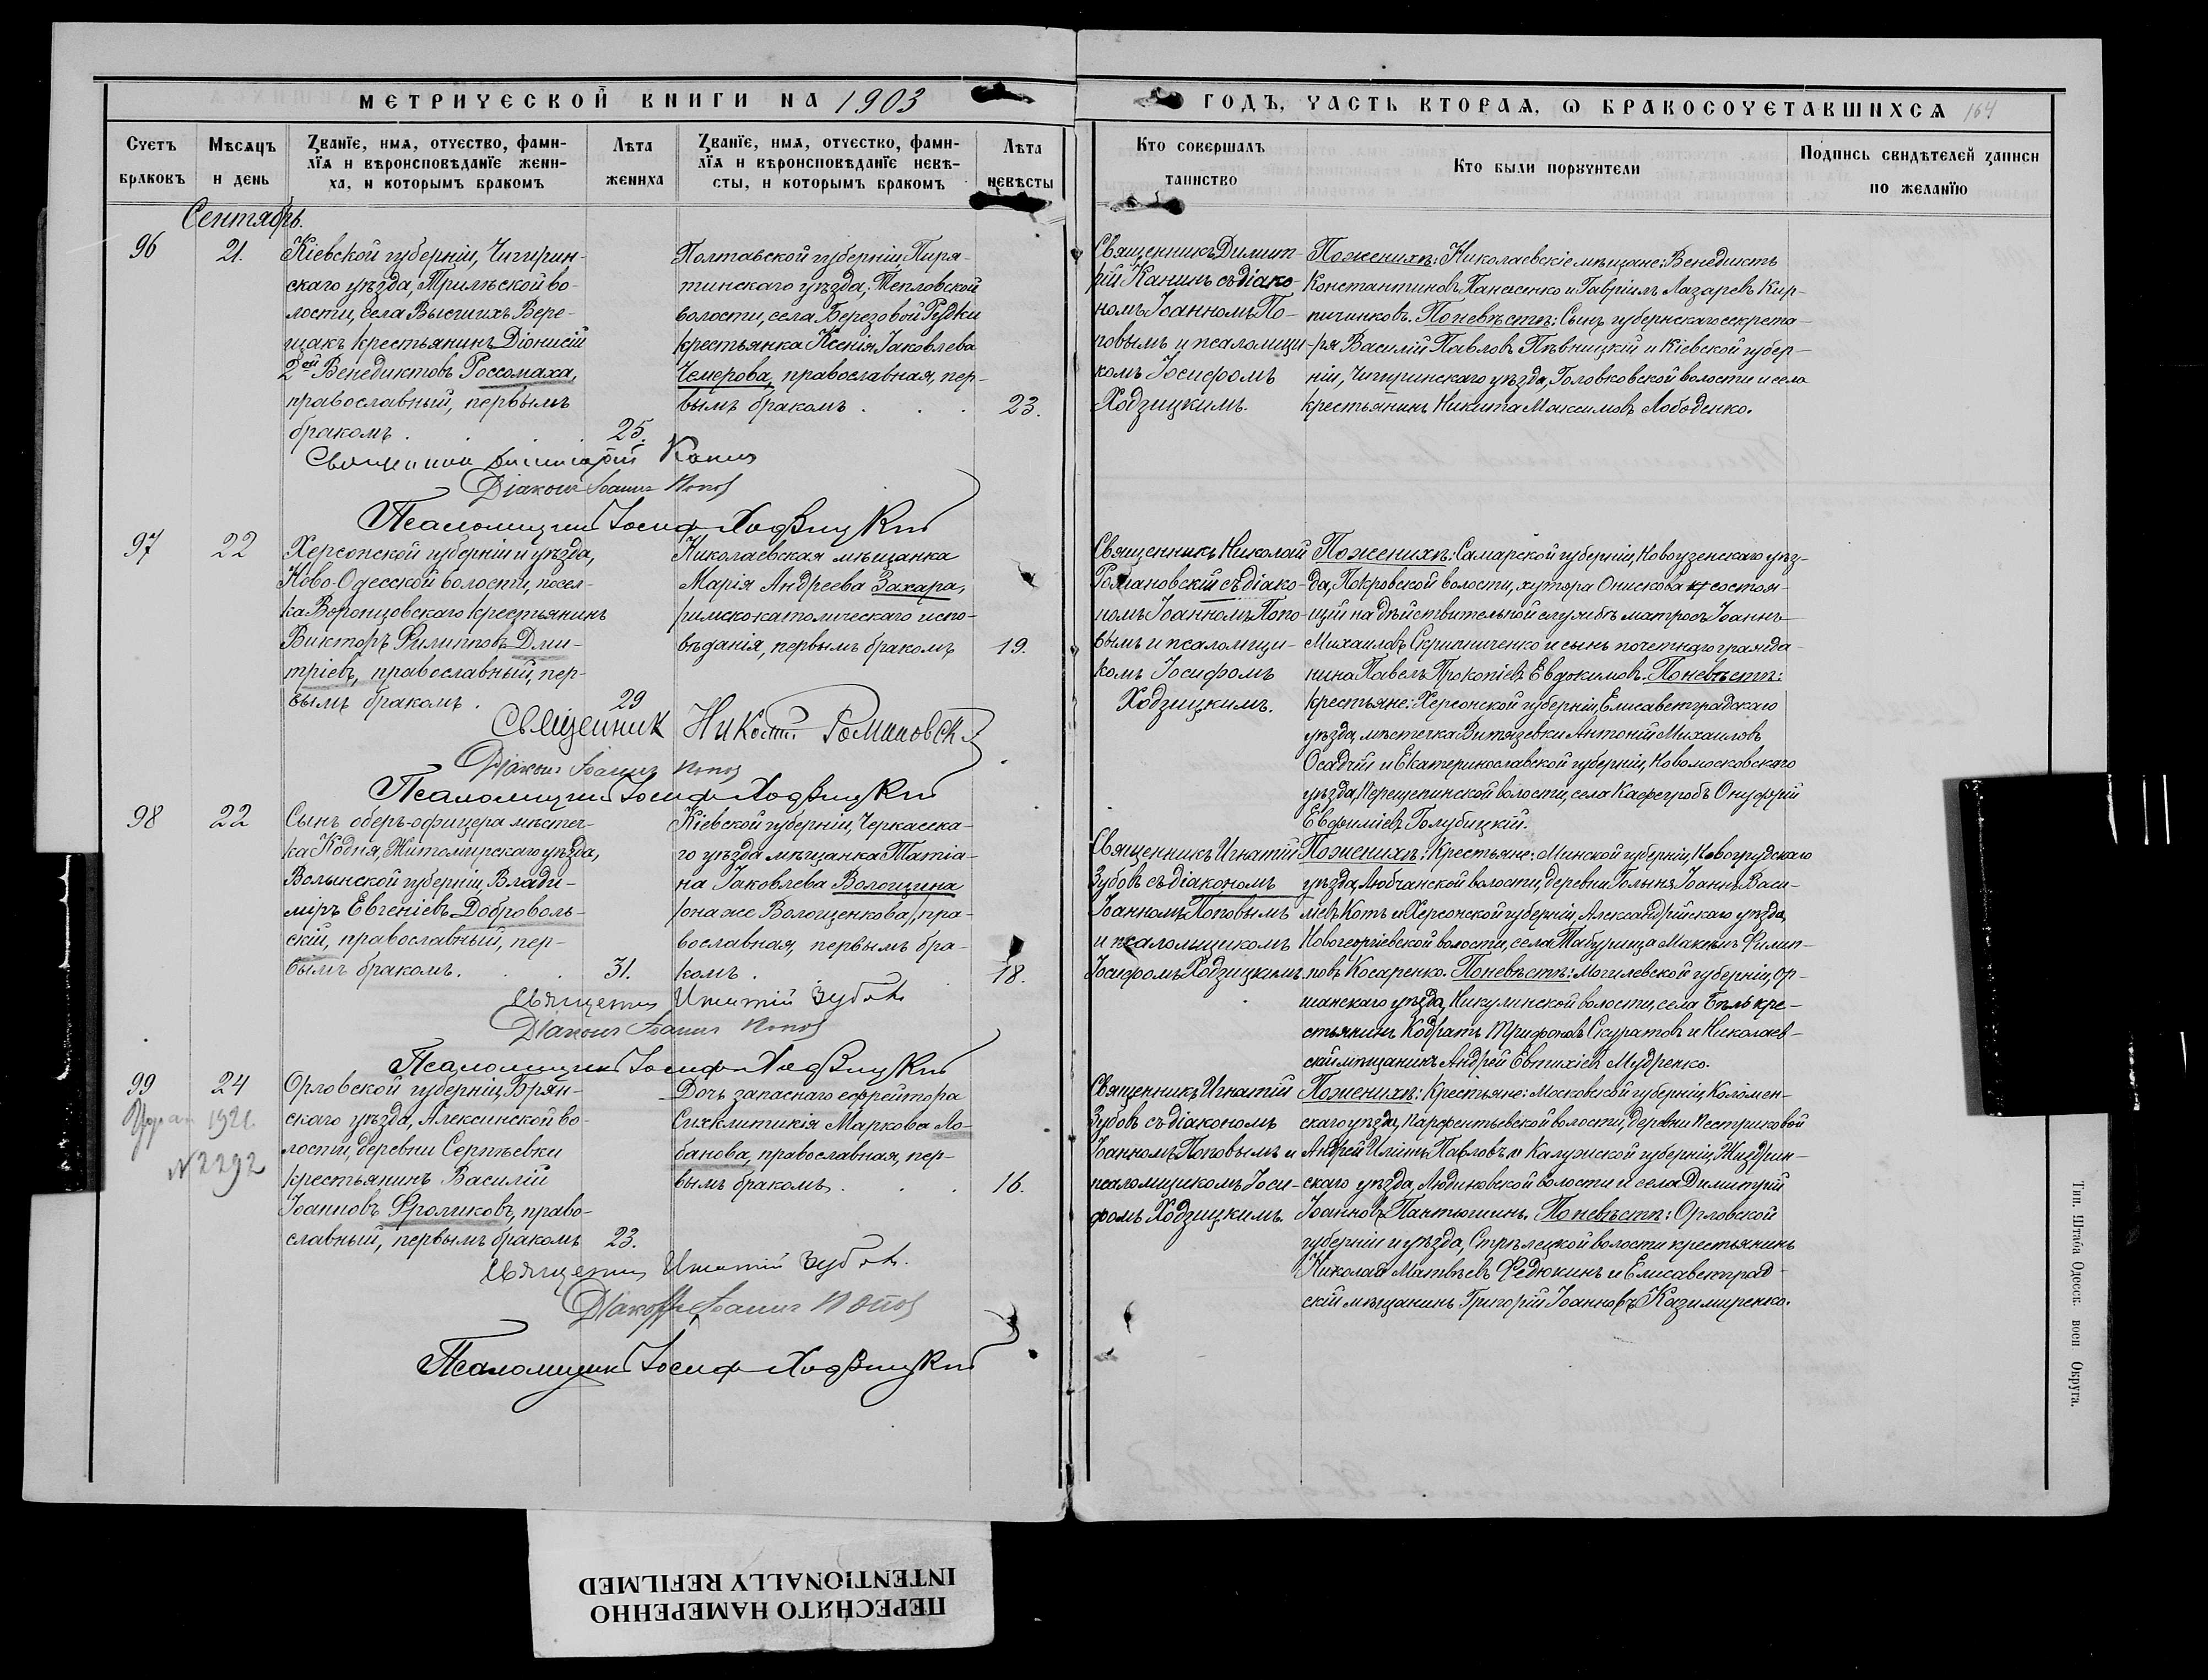 МЕТРИЧЕСКОЙ КНИГИ НА 1903
ГОДЪ, ЧАСТЬ ВТОРАѦ, Ѡ БРАКОСОЧЕТАВШИХСѦ 164
Счетъ браковъ
Мѣсѧцъ и день
Званїе, имѧ, отчество, фами-
лїѧ и вѣроисповѣданїе жени-
ха, и которымъ бракомъ
Лѣта жениха
Званїе, имѧ, отчество, фами-
лїѧ и вѣроисповѣданїе невѣ-
сты, и которымъ бракомъ
Лѣта невѣсты
Кто совершалъ таинство
Кто были порꙋчители
Подпись свидѣтелей записи
по желанїю
Сентябрь.
96
21.
Кіевской губерніи, Чигирин-
скаго уѣзда, Трилѣской во-
лости, села Высшихъ Вере-
щакъ крестьянинъ Діонисій
2ой Венедиктовъ Россомаха,
православный, первымъ
бракомъ . . . . 25.
Полтавской губерніи, Пиря-
тинскаго уѣзда, Тепловской
волости, села Березовой Рудки
крестьянка Ксенія Іаковлева
Чемерова, православная, пер-
вымъ бракомъ . . . 23.
Священникъ Димит-
рій Канинъ съ діако-
номъ Іоанномъ По-
повымъ и псаломщи-
комъ Іосифомъ
Ходзицкимъ.
По женихѣ: Николаевскіе мѣщане: Венедиктъ
Константиновъ Панасенко и Гавріилъ Лазаревъ Кир-
пичинковъ. По невѣстѣ: Сынъ губернскаго секрета-
ря Василій Павловъ Пѣвницкій и Кіевской губер-
ніи, Чигиринскаго уѣзда, Головковской волости и села
крестьянинъ Никита Максимовъ Лободенко.
Священник Димитрій Канин
Діаконъ Іоаннъ Попов
Псаломщикъ Іосиф Ходзицкій
97
22
Херсонской губерніи и уѣзда,
Ново-Одесской волости, посел-
ка Воронцовскаго крестьянинъ
Викторъ Филипповъ Дми-
тріевъ, православный, пер-
вымъ бракомъ . 29
Николаевская мѣщанка
Марія Андреева Захара,
римско-католическаго испо-
вѣданія, первымъ бракомъ 19.
Священникъ Николай
Романовскій съ діако-
номъ Іоанномъ Попо-
вымъ и псаломщи-
комъ Іосифомъ
Ходзицкимъ.
По женихѣ: Самарской губерніи, Новоузенскаго уѣз-
да, Покровской волости, хутора Онискова состоя-
щій на дѣйствительной службѣ матросъ Іоаннъ
Михаиловъ Скрипниченко и сынъ почетнаго гражда-
нина Павелъ Прокопіевъ Евдокимовъ. По невѣстѣ:
крестьяне: Херсонской губерніи, Елисаветградскаго
уѣзда, мѣстечка Витязевки Антоній Михаиловъ
Осадчій и Екатеринославской губерніи, Новомосковскаго
уѣзда, Перещепинской волости, села Кафегробъ Онуфрій
Евфиміевъ Голубицкій.
Священник Николай Романовскій
Діаконъ Іоаннъ Попов
Псаломщикъ Іосиф Ходзицкій
98
22
Сынъ оберъ-офицера мѣстеч-
ка Кодня, Житомирскаго уѣзда,
Волынской губерніи, Влади-
міръ Евгеніевъ Доброволь-
скій, православный, пер-
вымъ бракомъ. . . 31.
Кіевской губерніи, Черкасска-
го уѣзда мѣщанка Татіа-
на Іаковлева Волощина
(она же Волощенкова), пра-
вославная, первымъ бра-
комъ . . 18.
Священникъ Игнатій
Зубовъ съ діакономъ
Іоанномъ Поповымъ
и псаломщикомъ
Іосифомъ Ходзицкимъ.
По женихѣ: Крестьяне: Минской губерніи, Новогрудскаго
уѣзда, Любчанской волости, деревни Голыня Іоаннъ Васи-
ліевъ Котъ и Херсонской губерніи, Александрійскаго уѣзда,
Новогеоргіевской волости, села Табурища Максимъ Филип-
повъ Косаренко. По невѣстѣ: Могилевской губерніи, Ор-
шанскаго уѣзда, Никулинской волости, села Бѣль кре-
стьянинъ Кодратъ Трифоновъ Скуратовъ и Николаев-
скій мѣщанинъ Андрей Евтихіевъ Мудренко.
Священник Игнатій Зубовъ
Діаконъ Іоаннъ Попов
Псаломщикъ Іосиф Ходзицкій
99
24
1921.
№ 2292
Орловской губерніи, Брян-
скаго уѣзда, Алексинской во-
лости, деревни Сергѣевки
крестьянинъ Василій
Іоанновъ Фроликовъ, право-
славный, первымъ бракомъ 23.
Дочь запаснаго ефрейтора
Синклитикія Маркова Ло-
банова, православная, пер-
вымъ бракомъ . . . 16.
Священникъ Игнатій
Зубовъ съ діакономъ
Іоанномъ Поповымъ и
псаломщикомъ Іоси-
фомъ Ходзицкимъ.
По женихѣ: Крестьяне: Московской губерніи, Коломен-
скаго уѣзда, Парфентьевской волости, деревни Пестриковой
Андрей Илiинъ Павловъ и Калужской губерніи, Жиздрин-
скаго уѣзда, Людиновской волости и села Димитрій
Іоанновъ Пантюшинъ. По невѣстѣ: Орловской
губерніи и уѣзда, Стрѣлецкой волости крестьянинъ
Николай Матвѣевъ Федюкинъ и Елисаветград-
скій мѣщанинъ Григорій Іоанновъ Казимиренко.
Священник Игнатій Зубовъ.
Діаконъ Іоаннъ Попов
Псаломщикъ Іосиф Ходзицкій
Тип. Штаба Одесск. воен Округа.
ПЕРЕСНЯТО НАМЕРЕННО
INTENTIONALLY REFILMED